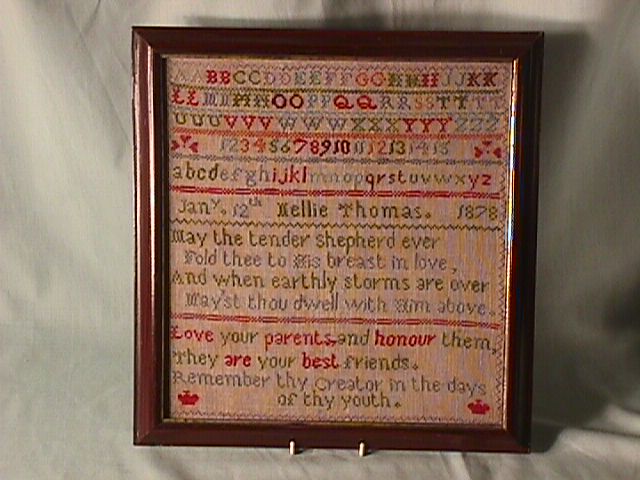 AABBCCDDEEFFGGHHHIJKK
LLMMNNOOPPQQRRSSTTTT
UUUVVVWWWXXXYYYZZZ
1 2 3 4 5 6 7 8 9 10 11 12 13 14 15
abcdefghijklmnopqrstuvwxyz
Jany. 12th Nellie Thomas. 1878
May the tender shepherd ever
Fold thee to His breast in love,
And when earthly storms are over
May'st thou dwell with Him above.
Love your parents, and honour them,
They are your best friends.
Remember thy Creator in the days
of thy youth.